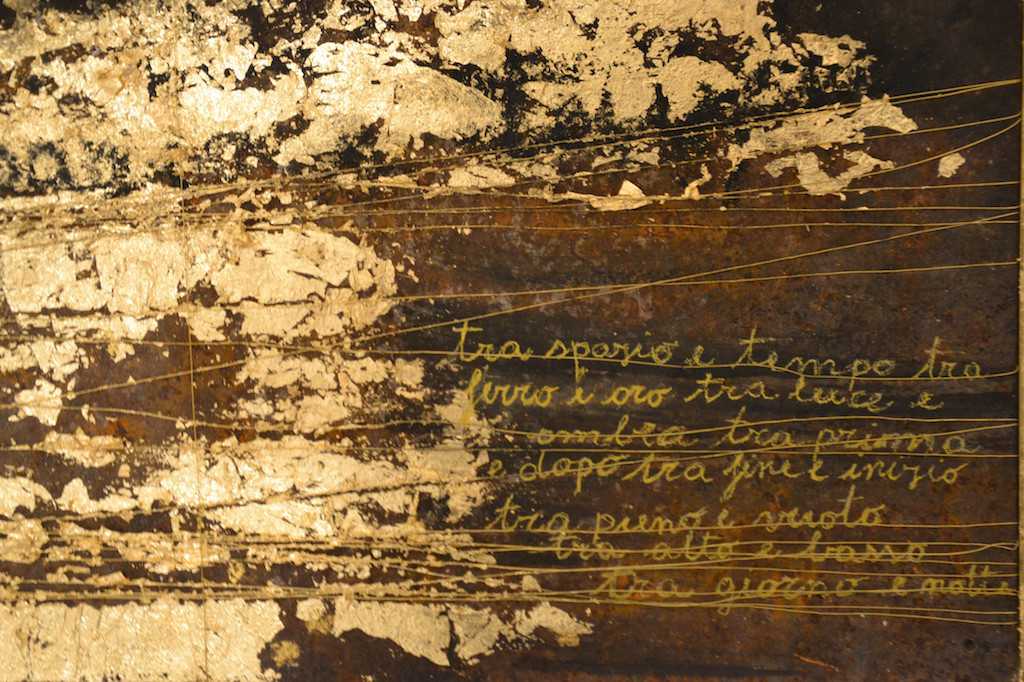 tra spazio e tempo tra
ferro e oro tra luce e
ombra tra prima
e dopo tra fine e inizio
tra pieno e vuoto
tra alto e basso
tra giorno e notte